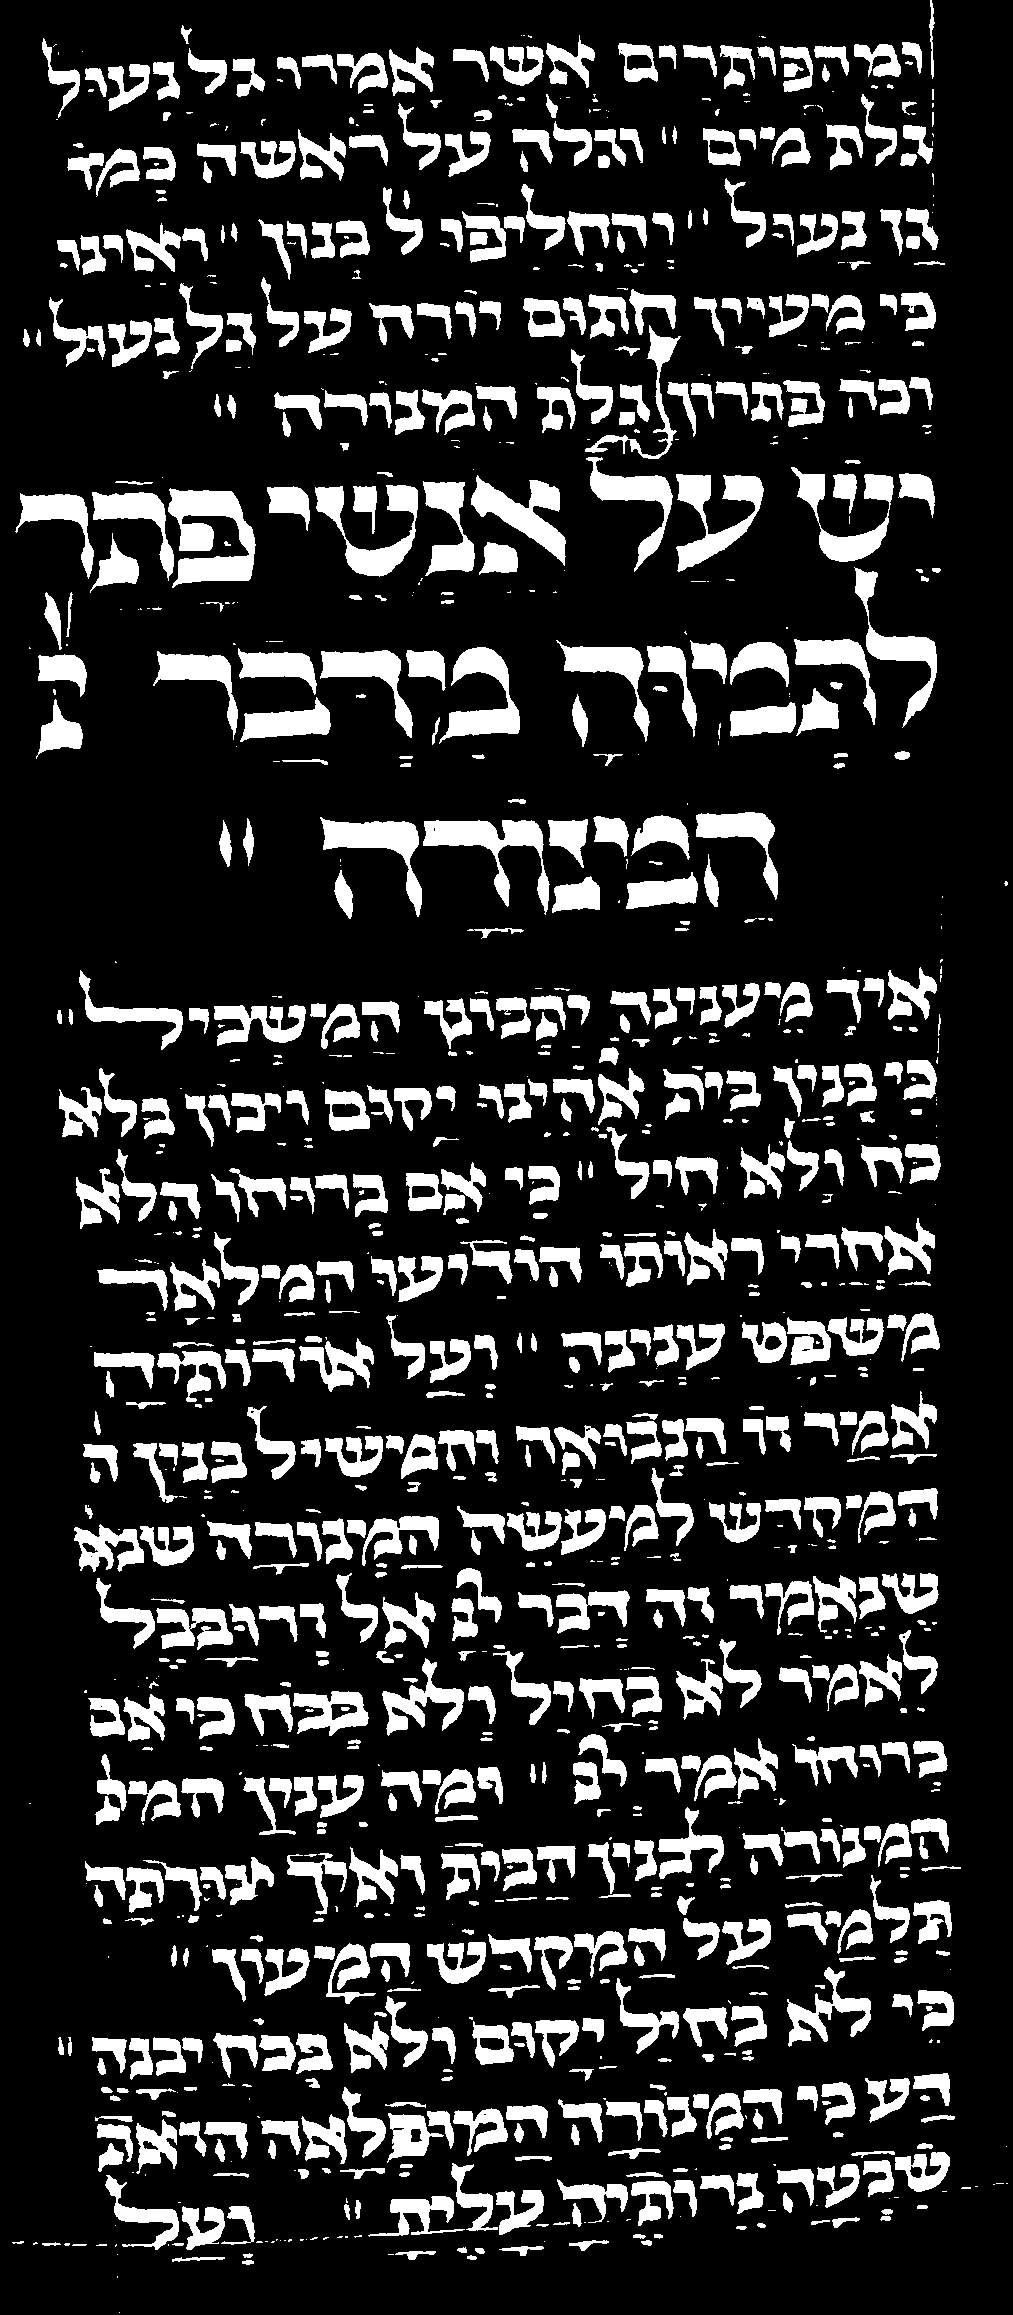 וּמֵהַפּוֹתְרִים אֲשֶׁר אָמְרוּ גַל נָעוּל
גֻּלַּת מַיִם " וְגֻלָּה עַל רֹאשָׁהּ כְּמוֹ
גַן נָעוּל " וְהֶחֱלִיפוּ ל' בְּנוּן " וְאֵינֶנּוּ
כִּי מַעְיָן חָתוּם יוֹרֶה עַל גַּל נָעוּל "
וְכֹה פִּתְרוֹן גֻּלַּת הַמְּנוֹרָה "
יֵשׁ עַל אַנְשֵׁי פֶתַר
לִתְמוֹהַּ מִדְּבַר נֵ'
הַמְּנוֹרָה "
אֵיךְ מֵעִנְיָנָהּ יִתְכּוֹנֵן הַמַּשְׂכִּיל "
כִּי בִּנְיַן בֵּית אֱלֹהֵינוּ יָקוּם וְיִכּוֹן בְּלֹא
כֹחַ וְלֹא חַיִל " כִּי אִם בְּרוּחוֹ הֲלֹא
אַחֲרֵי רְאוֹתוֹ הוֹדִיעוֹ הַמַּלְאָךְ
מִשְׁפַּט עִנְיָנָהּ " וְעַל אוֹדוֹתֶיהָ
אָמַר זוֹ הַנְּבוּאָה וְהִמְשִׁיל בִּנְיַן ה
הַמִּקְדָּשׁ לְמַעֲשֵׂה הַמְּנוֹרָה שֶׁנֶּאֱ
שֶׁנֶּאֱמַר זֶה דְּבַר יְיָ אֶל זְרֻבָּבֶל
לֵאמֹר לֹא בְחַיִל וְלֹא בְכֹחַ כִּי אִם
בְּרוּחִי אָמַר יְיָ " וּמָה עִנְיַן הַמְנ
הַמְּנוֹרָה לְבִנְיַן הַבַּיִת וְאֵיךְ יְנוֹרָתָהּ
תְּלַמֵּד עַל הַמִּקְדָּשׁ הַמָּעוֹן "
כִּי לֹא בְחַיִל יָקוּם וְלֹא בְכֹחַ יִבָּנֶה "
דַּע כִּי הַמְּנוֹרָה הַמּוּפְלָאָה הַזֹּאת
שִׁבְעָה נֵרוֹתֶיהָ עָלֶיהָ " וְעַל